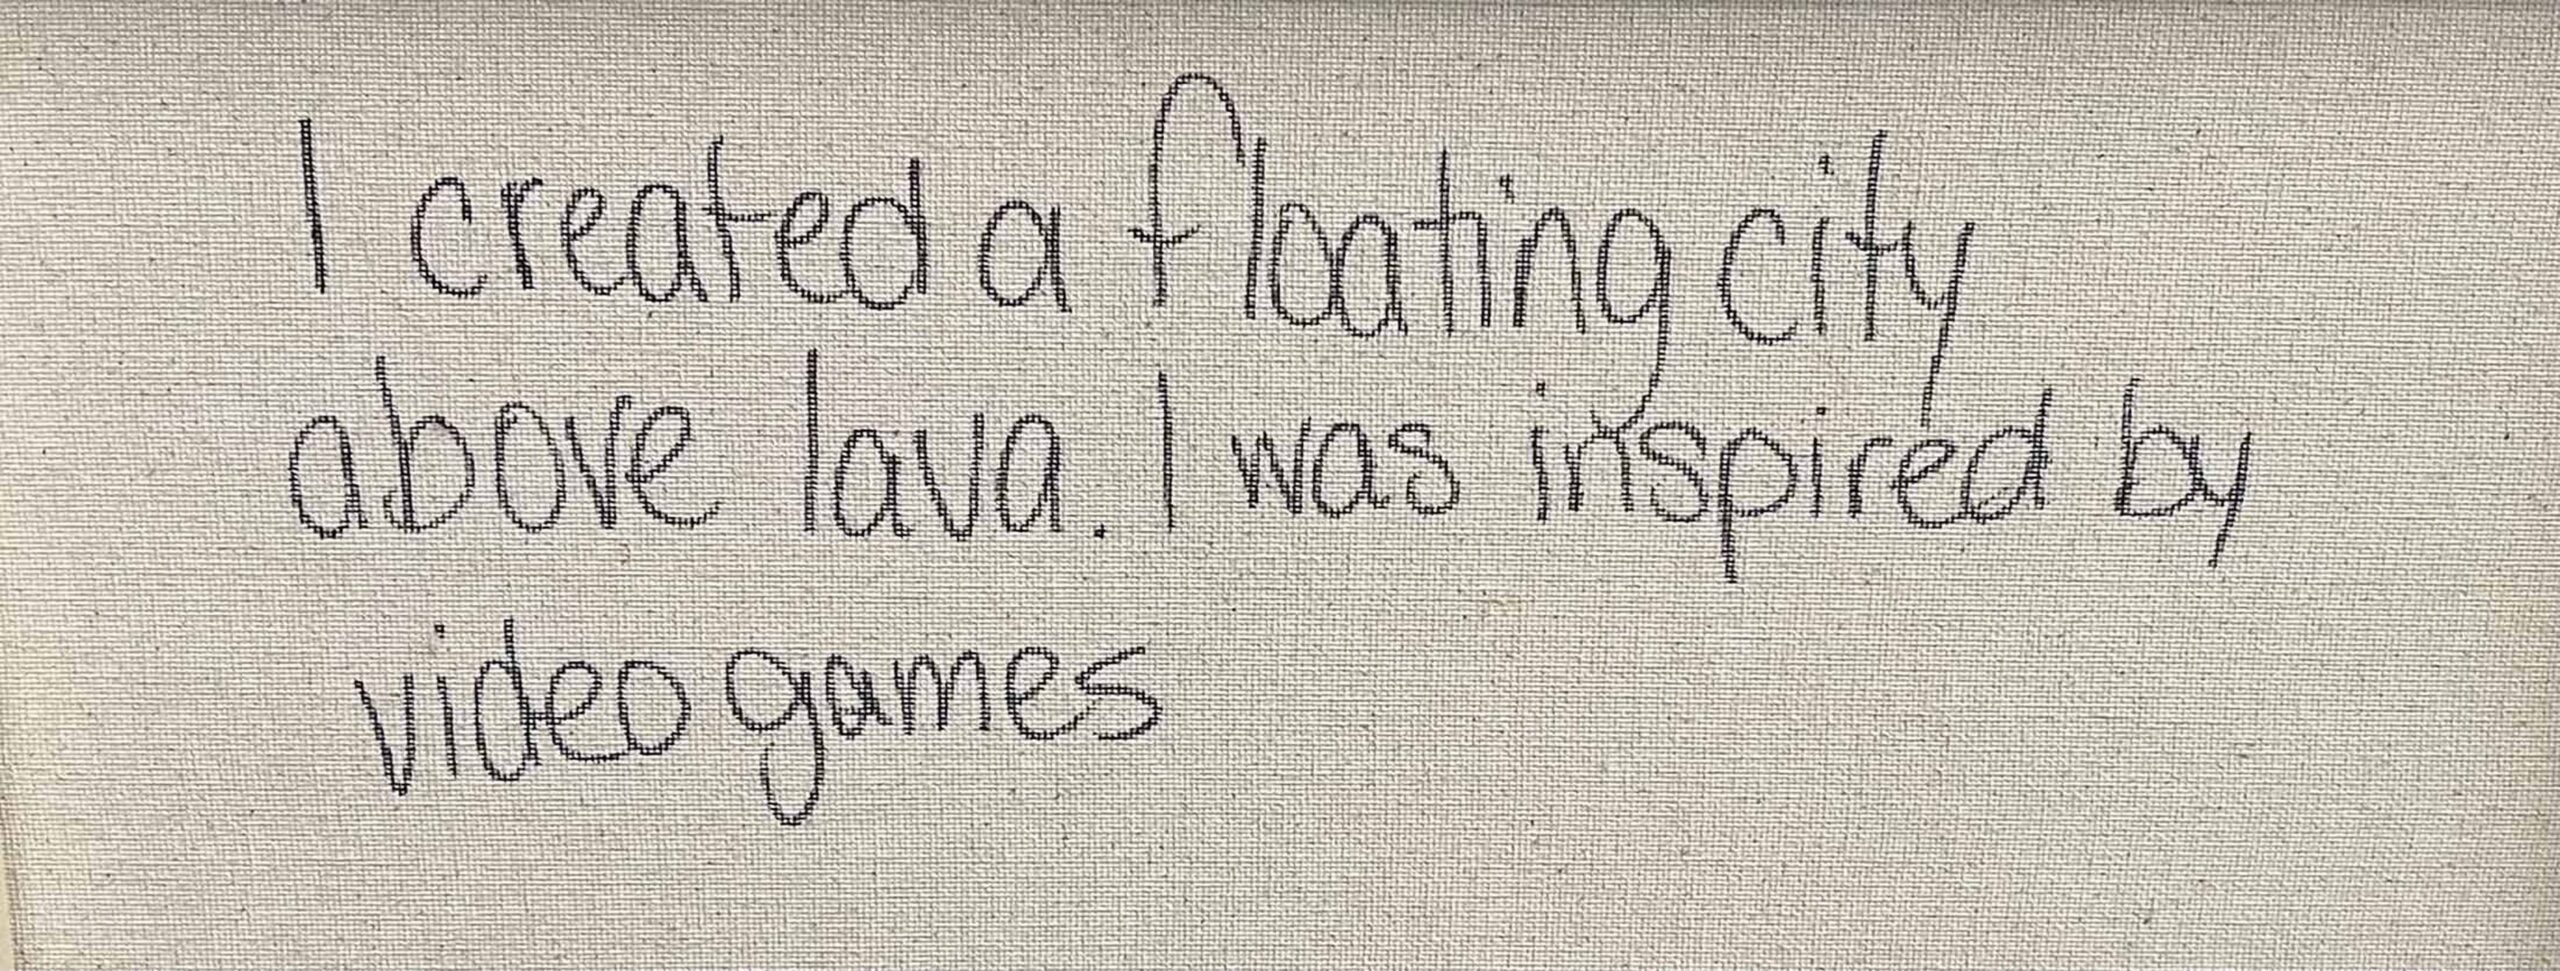 I created a floating city
above lava. I was inspired by
video games